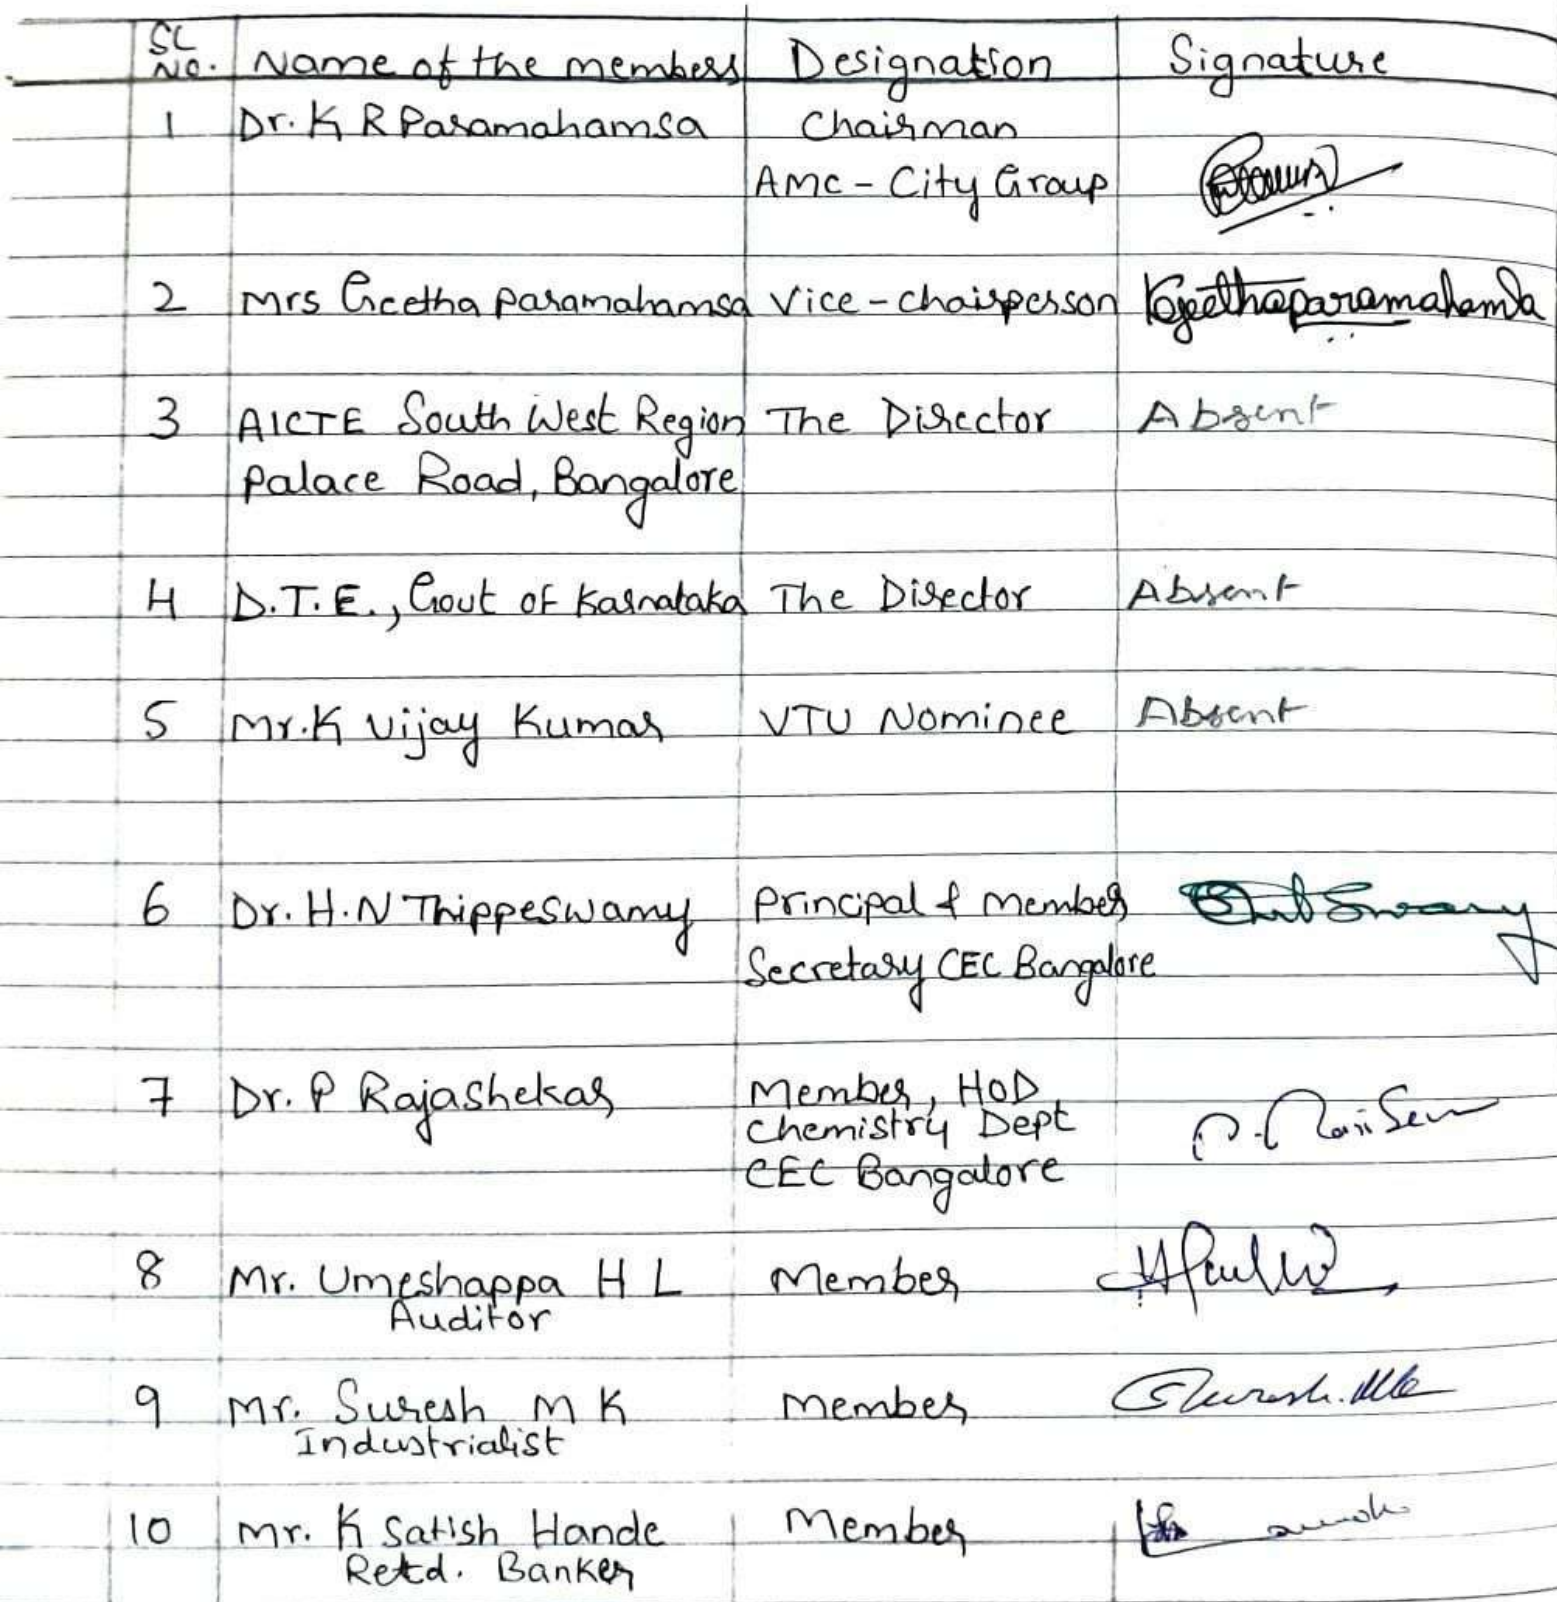 SL NO. Name of the members Designation Signature
1 Dr. K R Paramahamsa Chairman
AMC - City Group
2 Mrs Geetha Paramahamsa Vice-chairperson Kgeethaparamahamsa
3 AICTE South West Region The Director Absent
Palace Road, Bangalore
4 D.T.E., Govt of Karnataka The Director Absent
5 Mr. K Vijay Kumar VTU Nominee Absent
6 Dr. H.N Thippeswamy Principal & Member
Secretary CEC Bangalore
7 Dr. P Rajashekar Member, HOD
Chemistry Dept
CEC Bangalore
8 Mr. Umeshappa H L Member
Auditor
9 Mr. Suresh M K Member Suresh. MK
Industrialist
10 Mr. K Satish Hande Member
Retd. Banker